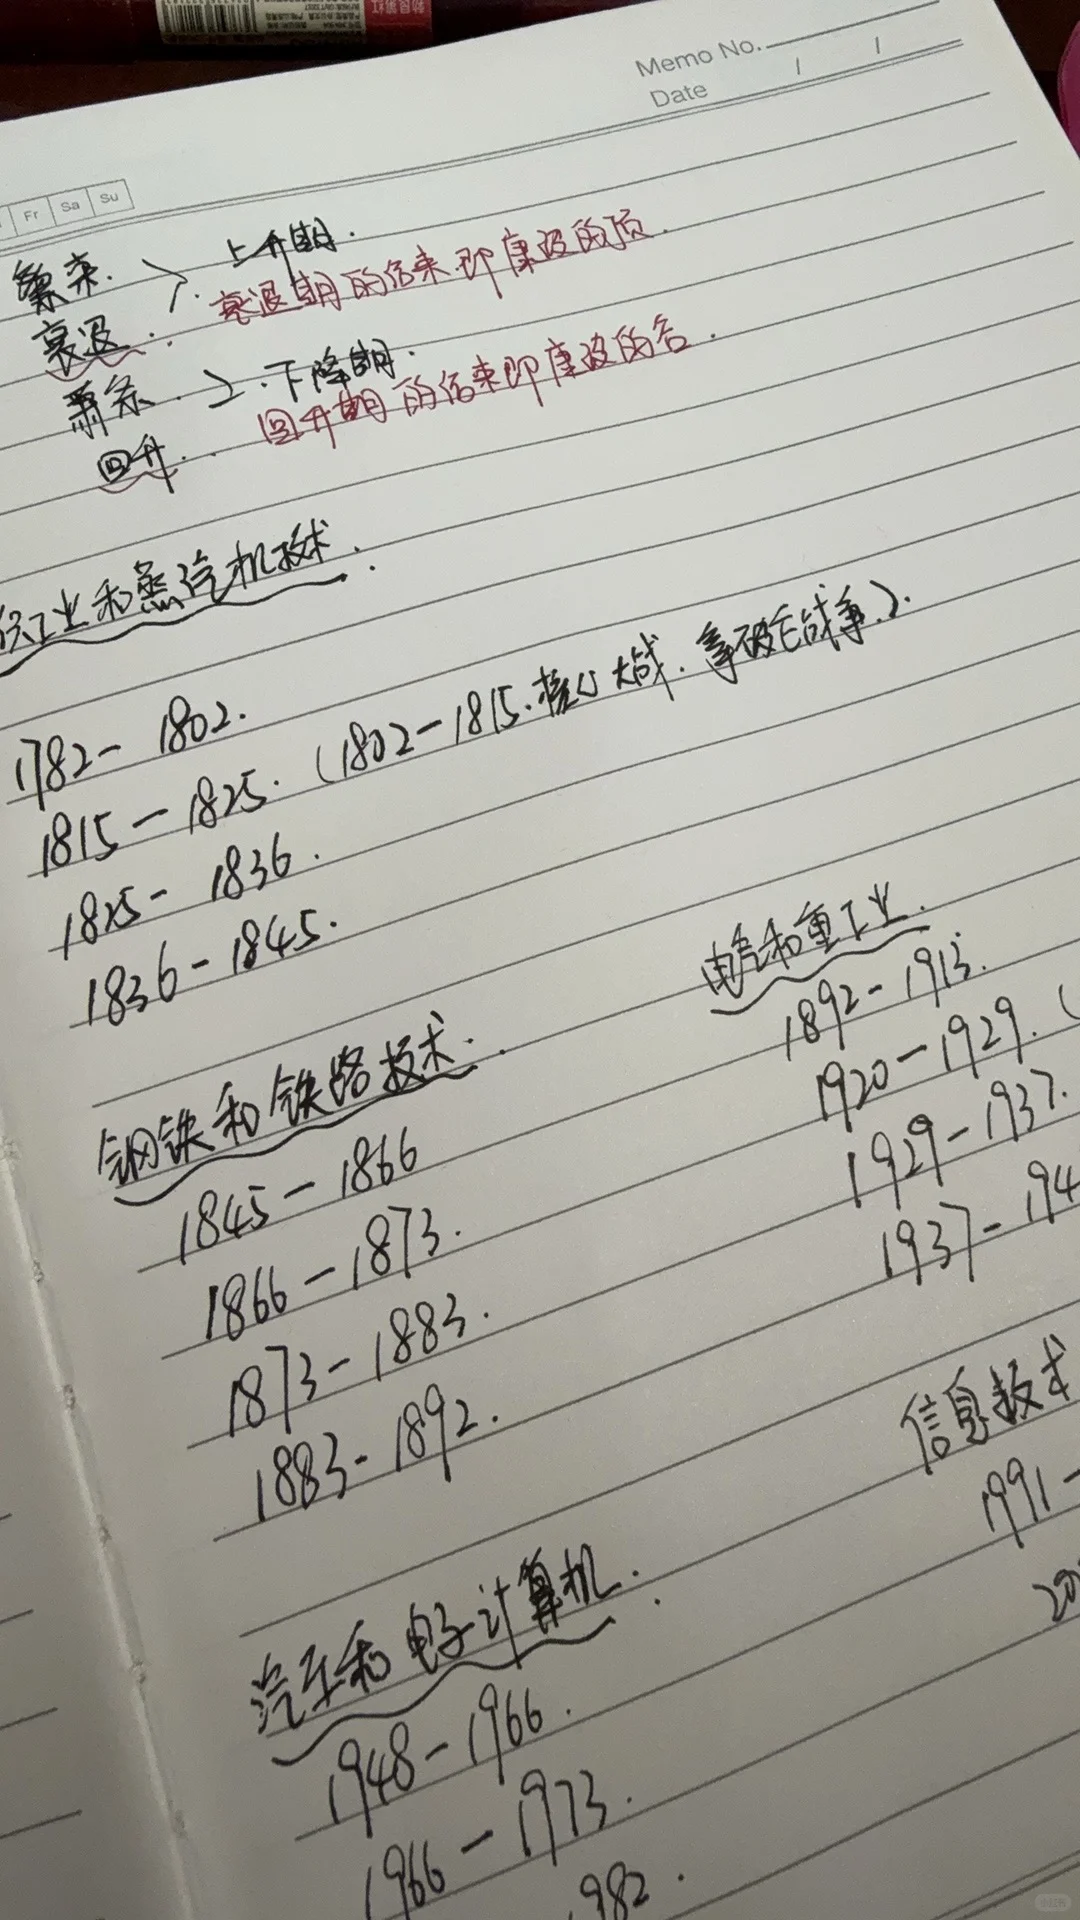 Memo No.
Date / /
Fr Sa Su
繁荣. 上升期.
衰退. 衰退期的结束即康波的顶.
萧条. 下降期.
回升. 回升期的结束即康波的谷.
织工业和蒸汽机技术.
1782- 1802.
1815- 1825. (1802-1815.核心大战.拿破仑战争.).
1825- 1836.
1836-1845.
钢铁和铁路技术.
1845-1866
1866-1873.
1873-1883.
1883-1892.
电气和重工业.
1892-1913.
1920-1929. (
1929-1937.
1937-194
汽车和电子计算机.
1948-1966.
1966-1973.
982.
信息技术
1991-
20